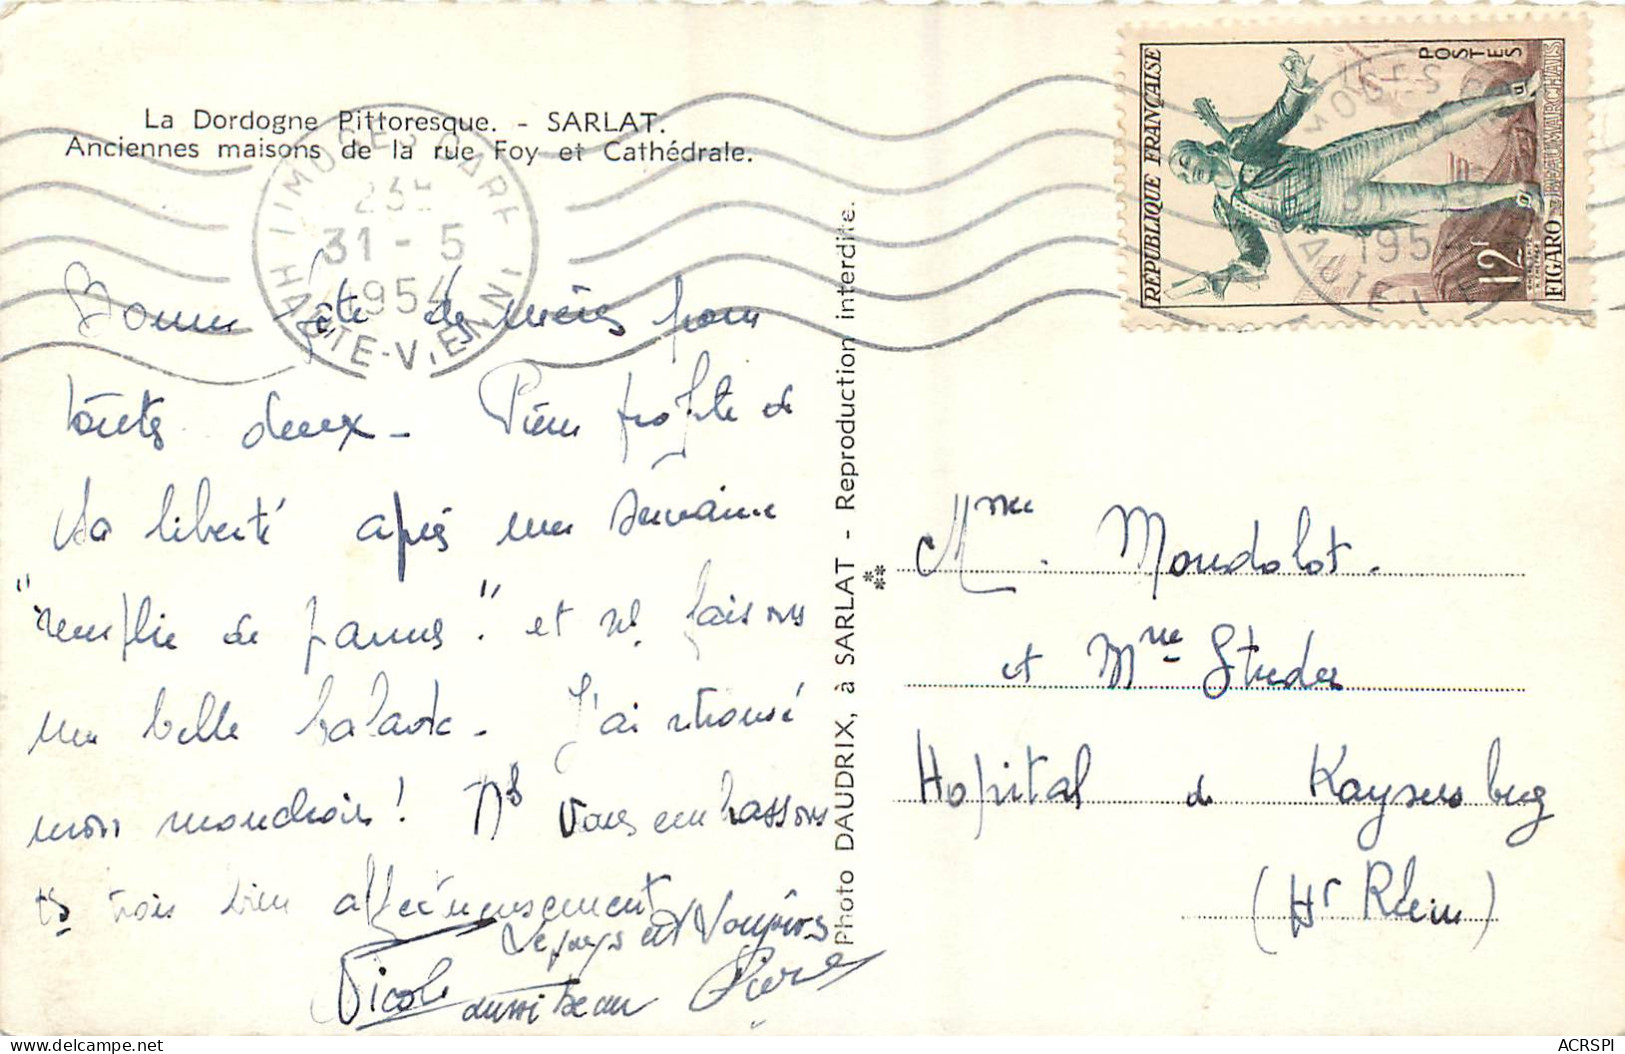 La Dordogne Pittoresque. - SARLAT.
Anciennes maisons de la rue Foy et Cathédrale.
LIMOGES GARE
31 - 5
1954
HAUTE-VIENNE
Bonne fête des mères pour
toutes deux - Pierre profite de
sa liberté après une semaine
"remplie de pannes". et ns faisons
une belle balade - J'ai retrouvé
mon mandrois ! Ns vous embrassons
ts trois bien affectueusement
Le pays est toujours
aussi beau
Nicole
Pierre
Photo DAUDRIX, à SARLAT - Reproduction interdite.
RÉPUBLIQUE FRANÇAISE
POSTES
12F
FIGARO BEAUMARCHAIS
Mme Mondolot.
et Mme Studer
Hopital de Kaysersberg
(Ht Rhin)
ACRSPI